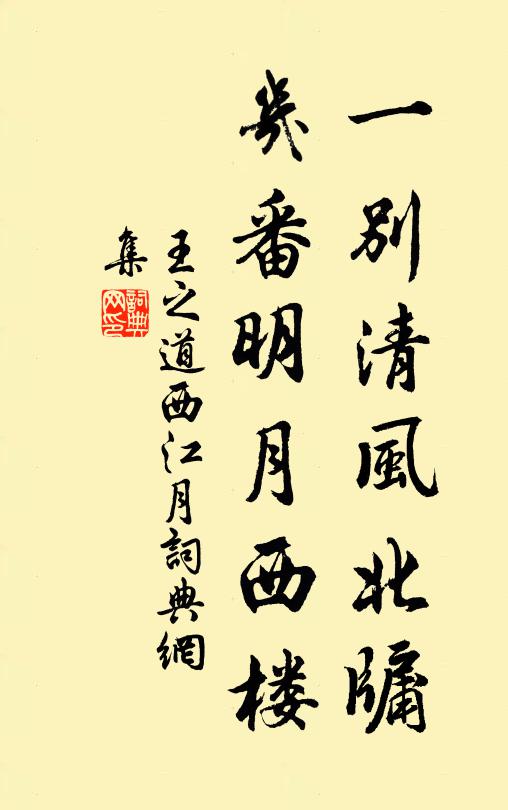 一别清風北牖
幾番明月西楼
王之道西江月詞典網
集
詞典網印